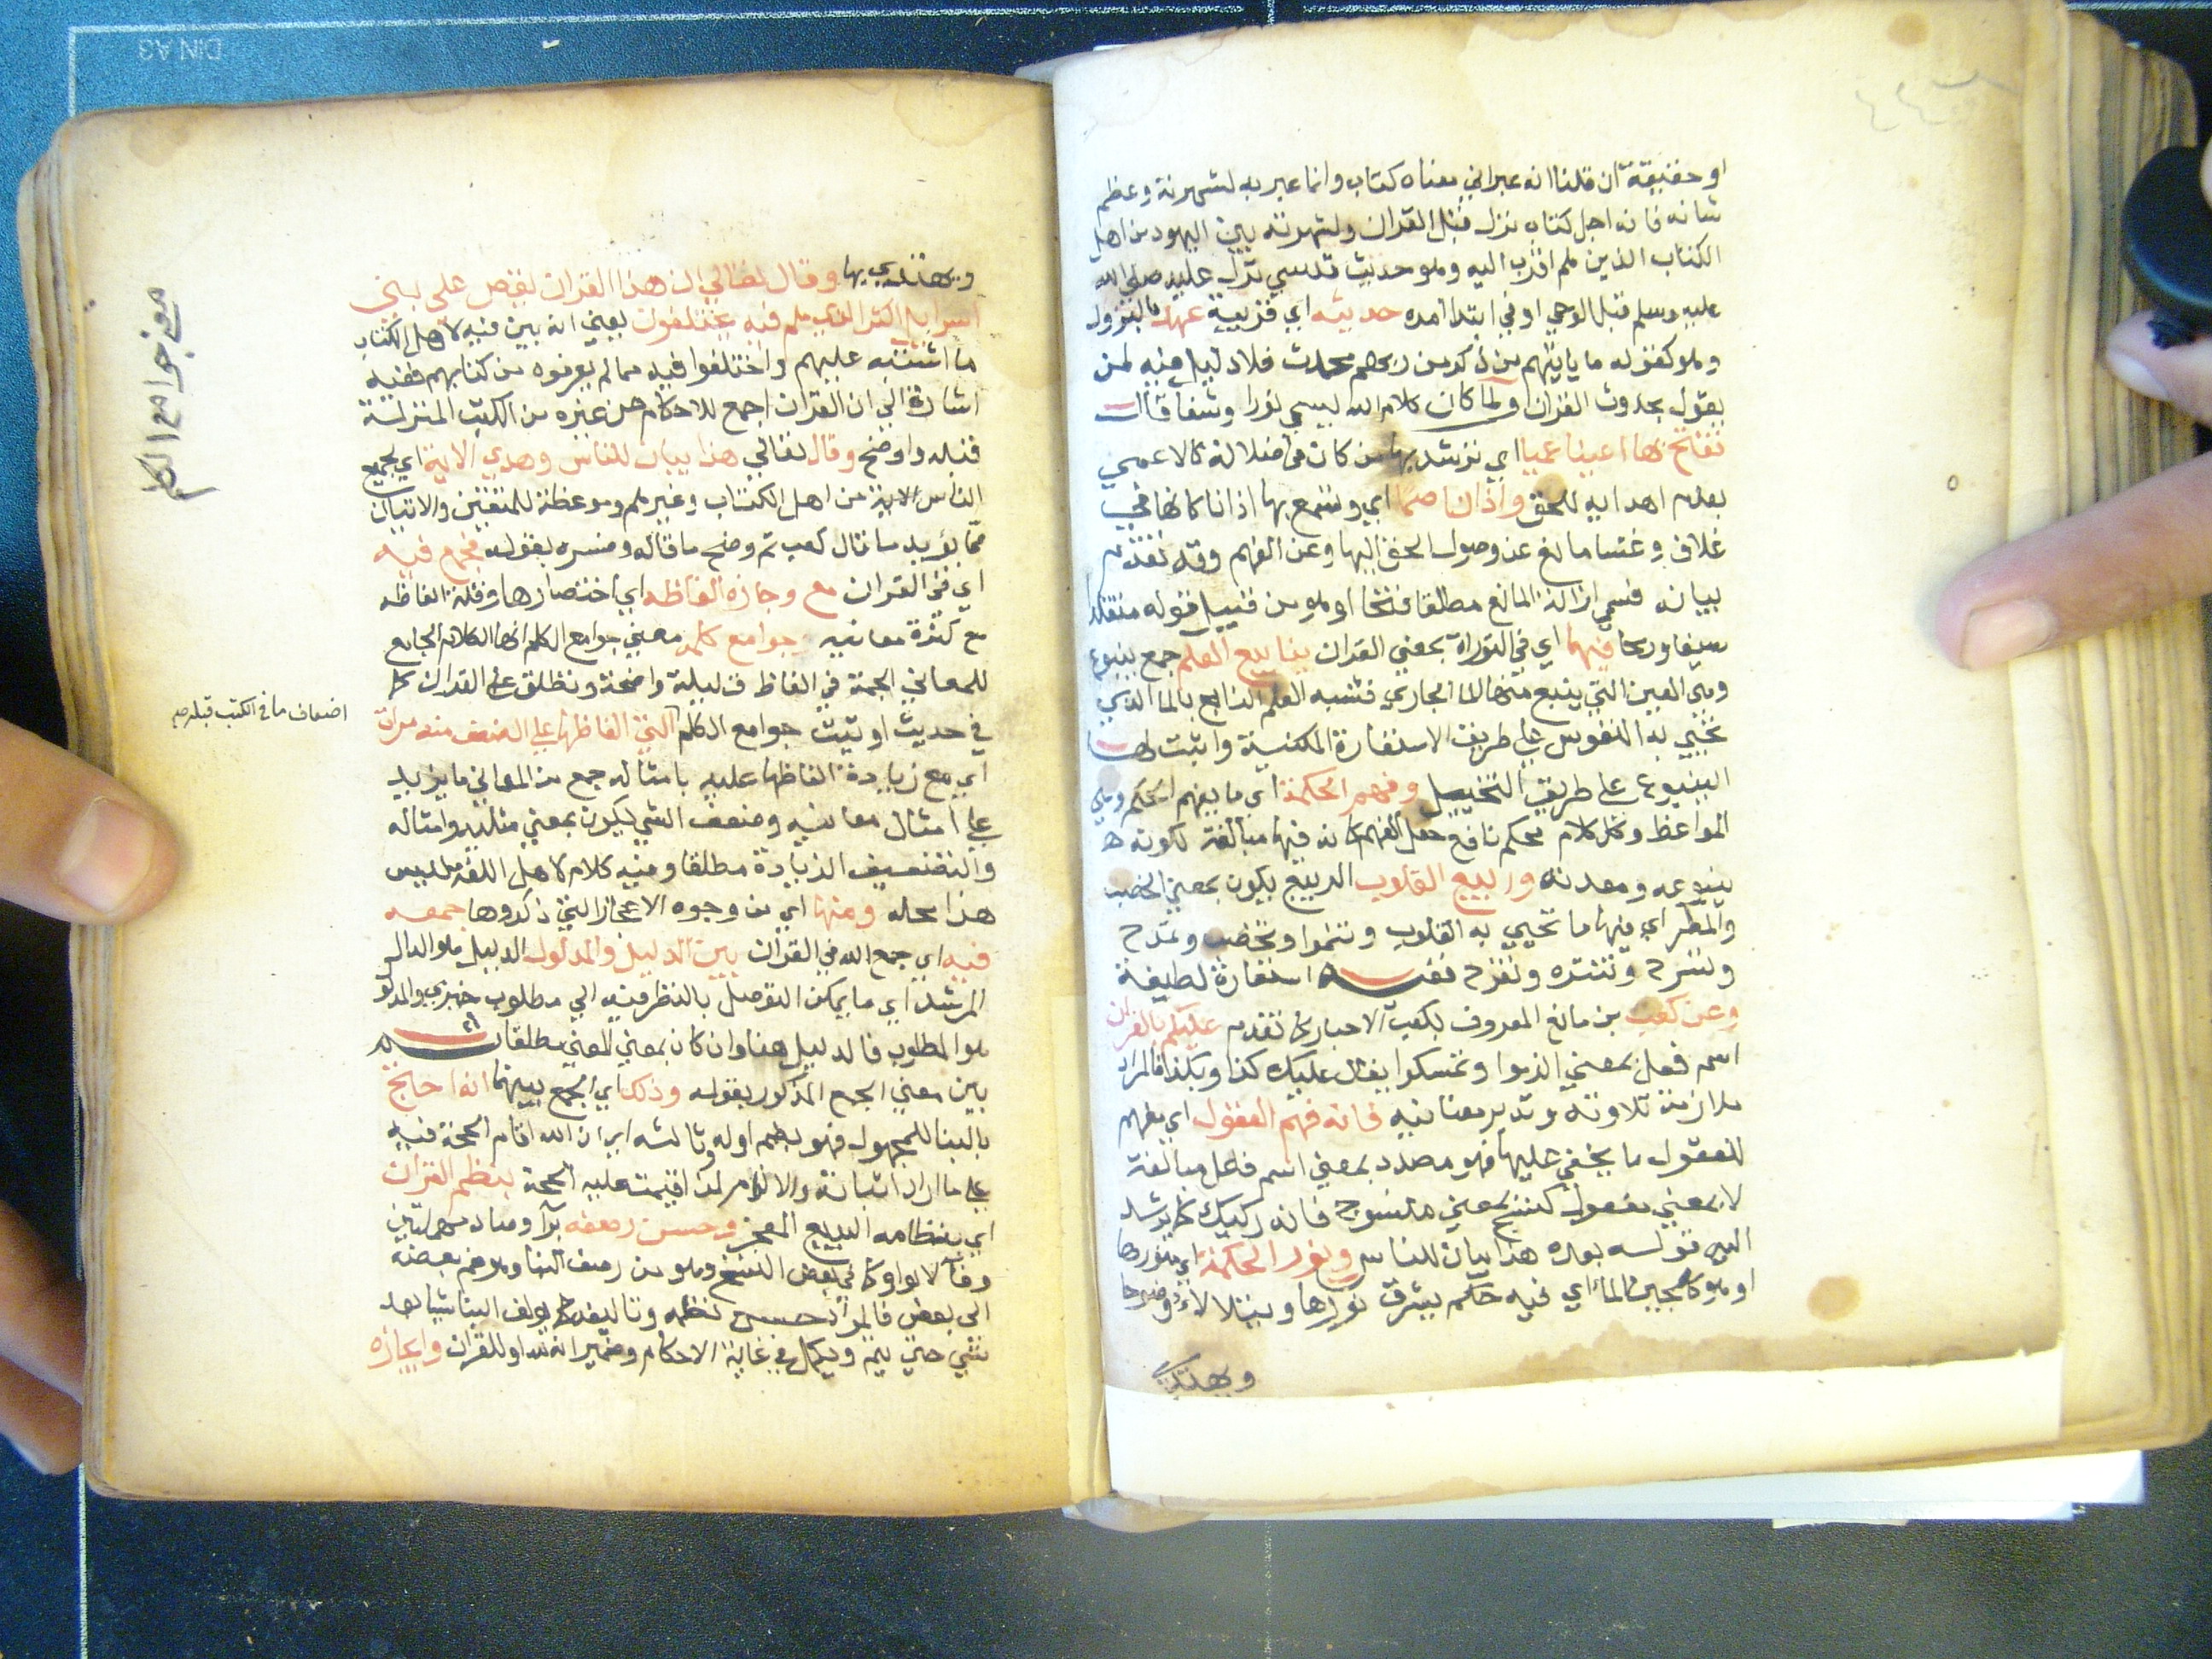 او حقيقة ان قلنا انه عبراني معناه كتاب وانما عبر به لشهرته وعظم
شانه فانه اجل كتاب نزل قبل القران ولشهرته بين اليهود من اهل
الكتاب الذين هم اقرب اليه وهو حديث قدسي نزل عليه صلى الله
عليه وسلم قبل الوحي او في ابتدا امره حديثه اي قريبة عهد بالنزول
وهو كقوله ما ياتيهم من ذكر من ربهم محدث فلا دليل فيه لمن
يقول بحدوث القران ولما كان كلام الله ليسمي نورا وشفا قال
تفتح بها اعينا عميا اي ترشد بها من كان في ضلالة كالاعمي
بعدم اهدايه للحق واذانا صما اي وتسمع بها اذانا كانها في
غلاف وغشا مانع عن وصول الحق اليها وعن الفهم وقد تقدم
بيانه فسمي ازالة المانع مطلقا فتحا او هو من قبيل قوله متقلدا
سيفا ورمحا فيها اي في التوراة بمعني القران ينابيع العلم جمع ينبوع
وهي العين التي ينبع منها الما الجاري فشبه العلم النافع بالما الذي
تحيي به النفوس علي طريق الاستعارة المكنية واثبت لها
الينبوع علي طريق التخييل وفهم الحكمة اي ما يفهم الحكم وهي
المواعظ وكل كلام محكم نافع جعل الفهم كانه فيها مبالغة لكونه
ينبوعه ومعدنه وربيع القلوب الربيع يكون بمعني الخصب
والمطر اي فيها ما تحيي به القلوب وتنموا وتخضب وتمرح
وتسرح وتتنزه وتفرح ففيه استعارة لطيفة
وعن كعب بن مانع المعروف بكعب الاحبار كما تقدم عليكم بالقران
اسم فعل بمعني الزموا وتمسكوا يقال عليك كذا وبكذا فالمراد
ملازمة تلاوته وتدبر معانيه فانه فهم العقول اي يفهم
للعقول ما يخفي عليها فهو مصدر بمعني اسم فاعل مبالغة
لا بمعني مفعول كنسج بمعني منسوج فانه ركيك كما يرشد
اليه قوله بعده هذا بيان للناس ونور الحكمة اي منورها
او هو كلجين الما اي فيه حكم يشرق نورها ويتلالا
ويهتدي
ويهتدي بها وقال تعالي ان هذا القران يقص علي بني
اسرايل اكثر الذي هم فيه يختلفون يعني انه بين فيه لاهل الكتاب
ما اشتبه عليهم واختلفوا فيه مما لم يعرفوه من كتابهم ففيه
اشارة الي ان القران اجمع للاحكام من غيره من الكتب المنزلة
قبله واوضح وقال تعالي هذا بيان للناس وهدي الاية اي لجميع
الناس الاية من اهل الكتاب وغيرهم وموعظة للمتقين والاتيان
مما يؤيد ما قال كعب ثم وضح ما قاله وفسره بقوله فجمع فيه
اي في القران مع وجازة الفاظه اي اختصارها وقلة الفاظه
مع كثرة معانيه وجوامع كلمه معني جوامع الكلم انها الكلام الجامع
للمعاني الجمة في الفاظ قليلة واضحة وتطلق علي القران كما
في حديث اوتيت جوامع الكلم التي الفاظها علي الضعف منه مرات
اي مع زيادة الفاظها عليه بامثاله جمع من المعاني ما يزيد
علي امثال معانيه وضعف الشي يكون بمعني مثليه وامثاله
والتضعيف الزيادة مطلقا وفيه كلام لاهل اللغة ليس
هذا محله ومنها اي من وجوه الاعجاز التي ذكروها جمعه
فيه اي جمع الله في القران بين الدليل والمدلول الدليل هو الدال
المرشد اي ما يمكن التوصل بالنظر فيه الي مطلوب خبري والمدلول
هو المطلوب فالدليل هنا وان كان بمعني المعني مطلقا
بين معني الجمع المذكور بقوله وذلك اي الجمع بينهما انه احتج
بالبنا للمجهول فهو بضم اوله وثالثه اي ان الله اقام الحجة فيه
علي ما اراد اثباته والالزام لمن اقيمت عليه الحجة بنظم القران
اي بنظامه البديع المعجز وحسن رصفه برا وصاد مهملتين
وفا لا بواو كما في بعض النسخ وهو من رصف البنا وهو ضم بعضه
الي بعض فالمراد حسن نظمه وتاليفه كما يولف البنا شيا بعد
شي حتي يتم ويكمل في غاية الاحكام وضمير انه لله او للقران وايجازه
معني جوامع الكلم
اضعاف ما في الكتب قبله صح